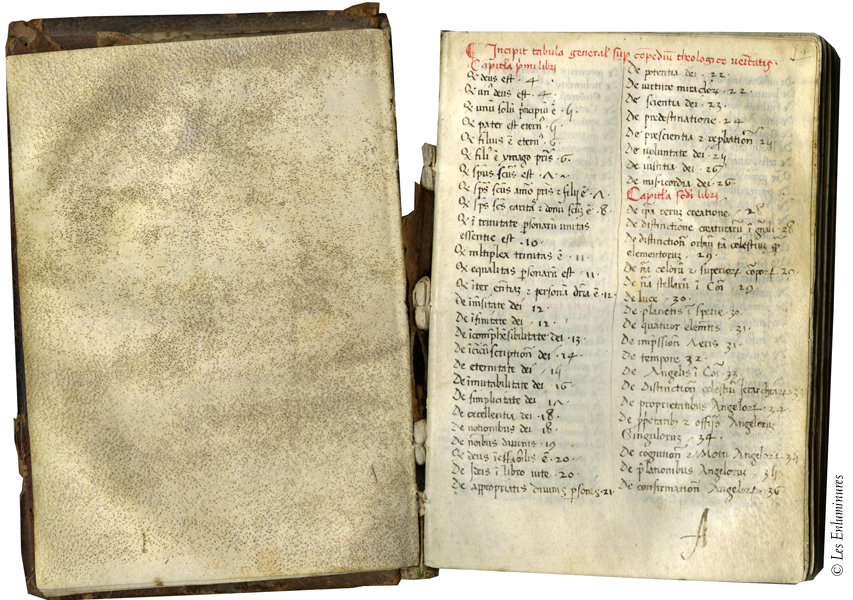 Incipit tabula general' sup compediu theologice veritatis.
Capitla primi libri
Q deus est . 4 .
Q un' deus est . 4 .
Q unu solu principiu e . 5 .
Q pater est etern' . 5 .
Q filius e etern' . 6 .
Q fili' e ymago pris . 6 .
Q spus scus est . 7 .
Q sps scus amor pris z filii e . 7 .
Q sps scs caritas z donu scm e . 8 .
Q i trinitate personaru unitas
essentie est . 10 .
Q multplex trinitas e . 11 .
Q equalitas personaru est . 11 .
Q iter z persona dria e . 12 .
De imensitate dei . 12 .
De ifinitate dei . 12 .
De icomprehesibilitate dei . 13 .
De icircuscription dei . 14 .
De eternitate dei . 15
De imutabilitate dei . 16 .
De simplicitate dei . 17 .
De excellentia dei . 18 .
De notionibus dei . 18 .
De noibus divinis . 19 .
Q deus e . 20 .
De i libro vite . 20 .
De appropriatis divinis psonis . 21 .
De potentia dei . 22 .
De virtute miraclor . 22 .
De scientia dei . 23 .
De predestinatione . 24
De prescientia z reprobation . 25
De voluntate dei . 25
De iustitia dei . 26
De misericordia dei . 26 .
Capitla scdi libri
De ipa rerum creatione . 28
De distinctione creaturaru i gnali . 28
De distinction orbiu ta celestium qm
elementorum . 29 .
De na celoru z superior corpor . 29 .
De na stellaru i Coi . 29 .
De luce . 30 .
De planetis i spetie . 30 .
De quatuor elemtis . 31 .
De impssion Aeris . 31 .
De tempore . 32 .
De Angelis i Coi . 33 .
De distinction celestiu ierarchiaru . 3
De proprietatibus Angelor . 34 .
De z offitio Angelorum
Singulorum . 34 .
De cognition z Motu Angelor . 35
De Angelorum . 35
De confirmation Angelor . 36
A
© Les Enluminures